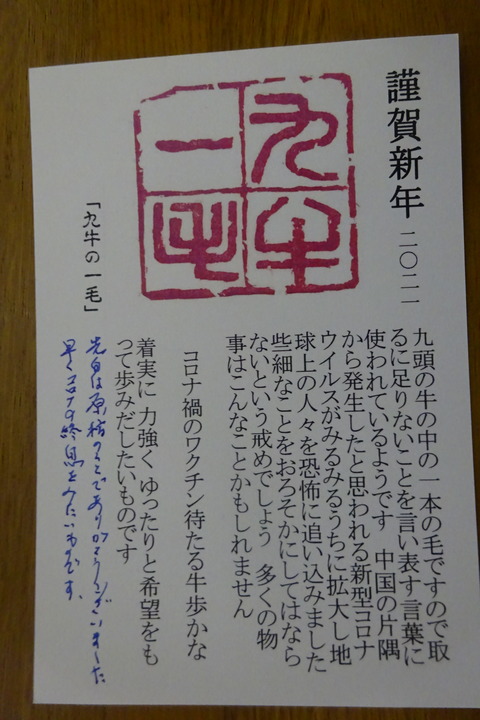 謹賀新年 二〇二一
九牛
一毛
「九牛の一毛」
九頭の牛の中の一本の毛ですので取
るに足りないことを言い表す言葉に
使われているようです 中国の片隅
から発生したと思われる新型コロナ
ウイルスがみるみるうちに拡大し地
球上の人々を恐怖に追い込みました
些細なことをおろそかにしてはなら
ないという戒めでしょう 多くの物
事はこんなことかもしれません
コロナ禍のワクチン待たる牛歩かな
着実に 力強く ゆったりと希望をも
って歩みだしたいものです
先日は原稿のことでありがとうございました
早くコロナの終息をみたいものです、